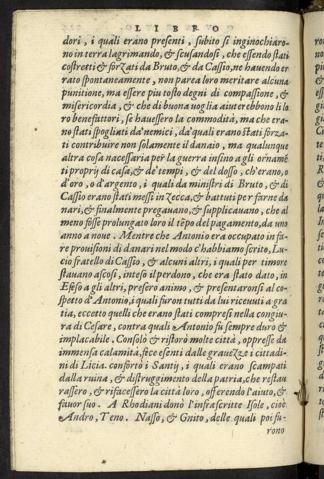 LIBRO
dori, i quali erano presenti, subito si inginochiaro-
no in terra lagrimando, & scusandosi, che essendo stati
costretti & forzati da Bruto, & da Cassio, ne hauendo er
rato spontaneamente, non parea loro meritare alcuna
punitione, ma essere piu tosto degni di compassione, &
misericordia, & che di buona uoglia aiuterebbono li lo
ro benefattori, se hauessero la commodità, ma che era-
no stati spogliati da'nemici, da'quali erano stati forza-
ti contribuire non solamente il danaio, ma qualunque
altra cosa necessaria per la guerra insino a gli ornamē
ti proprij di casa, & de'tempi, & del dosso, ch'erano, o
d'oro, o d'argento, i quali da ministri di Bruto, & di
Cassio erano stati messi in zecca, & battuti per farne da
nari, & finalmente pregauano, & supplicauano, che al
meno fosse prolungato loro il tēpo del pagamento, da uno
anno a noue. Mentre che Antonio era occupato in fa-
re prouisioni di danari nel modo c'habbiamo scrito, Lu-
cio fratello di Cassio, & alcuni altri, i quali per timore
stauano ascosi, inteso il perdono, che era stato dato, in
Efeso a gli altri, presero animo, & presentaronsi al co-
spetto d'Antonio, i quali furon tutti da lui riceuuti a gra
tia, eccetto quelli che erano stati compresi nella congiu-
ra di Cesare, contra quali Antonio fu sempre duro &
implacabile. Consolò & ristorò molte città, oppresse da
immensa calamità, fece esenti dalle grauezze i cittadi-
ni di Licia. confortò i Santij, i quali erano scampati
dalla ruina, & distruggimento della patria, che restau
rassero, & rifacessero la città loro, offerendo l'aiuto, &
fauor suo. A Rhodiani donò l'infrascritte Isole, cioè
Andro, Teno. Nasso, & Gnito, delle quali poi fu-
rono